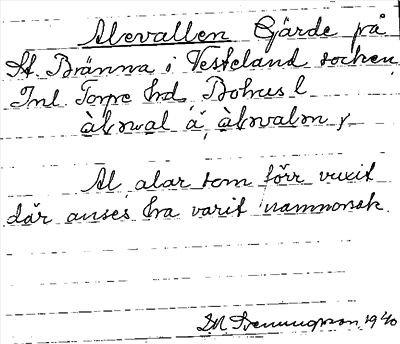 Alevallen Gärde på
St. Bränna i Vesteland socken
Inl. Torpe hd, Bohus l
àlrwal å, àlrvaln,
Al, alar som förr vuxit
där anses ha varit namnorsak.
1940